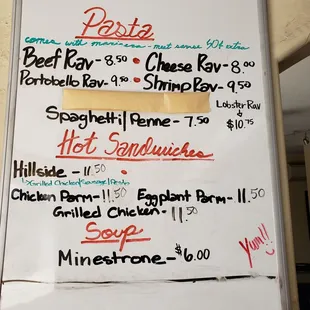 Pasta
comes with marinara - meat sauce 50¢ extra
Beef Rav - 8.50 • Cheese Rav - 8.00
Portobello Rav - 9.50 • Shrimp Rav - 9.50
Lobster Rav
$10.75
Spaghetti/Penne - 7.50
Hot Sandwiches
Hillside - 11.50
Grilled Chicken/Sausage/
Chicken Parm - 11.50 Eggplant Parm - 11.50
Grilled Chicken - 11.50
Soup
Minestrone - $6.00
Yum!!